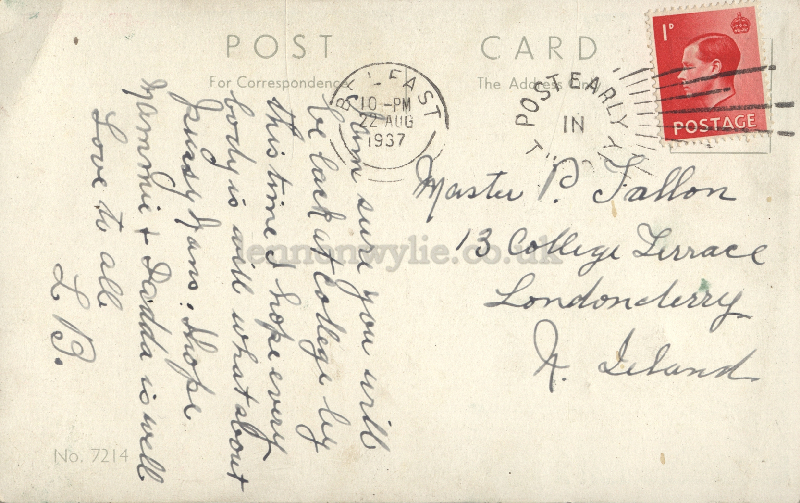 POST CARD
For Correspondence
The Address Only
BELFAST
10-PM
22 AUG
1937
POST EARLY
IN
1D
POSTAGE
Master P. Fallon
13 College Terrace
Londonderry
N. Ireland
I am sure you will
be back at College by
this time I hope every
body is will what about
pussy
I hope
Mammie & Dadda is well
Love to all
L B.
No. 7214
lennonwylie.co.uk